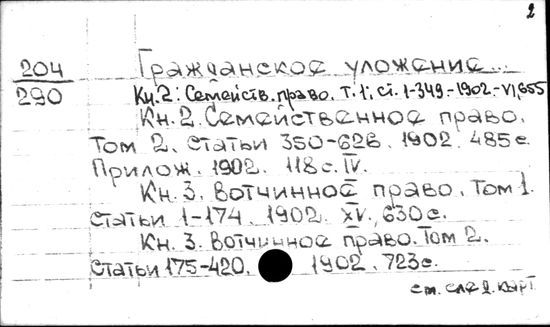 2
204 Гражданское уложение...
290 Кн.2: Семейств. право. Т.1; ст. 1-349.-1902.-VI,655
Кн.2. Семейственное право.
Том 2. Статьи 350-626. 1902. 485с.
Прилож. 1902. 118с. IV.
Кн.3. Вотчинное право. Том 1.
Статьи 1-174. 1902. XV, 630с.
Кн.3. Вотчинное право. Том 2.
Статьи 175-420. 1902. 723с.
см. след. карт.